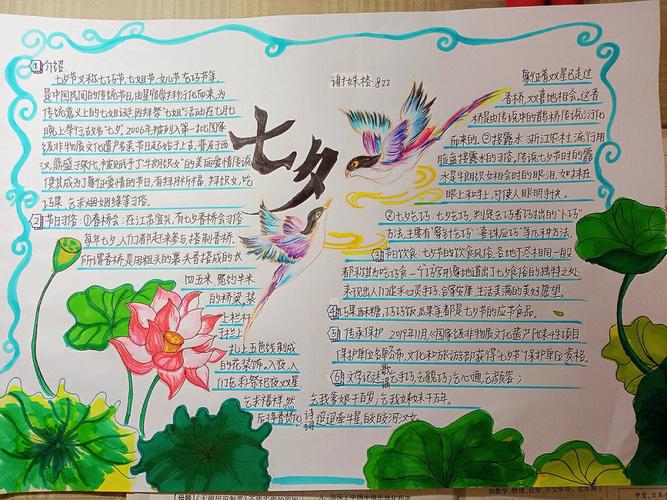 ①介绍
七夕节又称七巧节、七姐节、女儿节、乞巧节等,
是中国民间的传统节日,由星宿崇拜衍化而来,为
传统意义上的七姐诞,因拜祭“七姐”活动在七月七
晚上举行,故名“七夕”。2006年被列入第一批国家
级非物质文化遗产名录。节日起始于上古,普及于西
汉,鼎盛于宋代,被赋予了“牛郎织女”的美丽爱情传说
使其成为了象征爱情的节日,有拜月祈福、拜织女、吃
巧果、乞求姻缘等习俗。
②节日习俗:①香桥会:在江苏宜兴,有七夕香桥会习俗
每年七夕,人们都赶来参与,搭制香桥。
所谓香桥,是用粗长的裹头香搭成的长
四五米、宽约半米
的桥梁,装
上栏杆
于栏杆
扎上五色线制成
的花装饰。入夜,人
们祭祀双星
乞求福祥,然
后将香桥焚化
七夕
谢姝格 822
象征着双星已走过
香桥,欢喜地相会。这香
桥是由传说中的鹊桥传说衍化
而来的。②接露水:浙江农村,流行用
脸盆接露水的习俗。传说七夕节时的露
水是牛郎织女相会时的眼泪,如抹在
眼上和手上,可使人眼明手快。
③七夕乞巧:七夕乞巧,判定乞巧者巧拙的“卜巧”
方法,主要有“穿针乞巧”“喜蛛应巧”等几种方法。
③节日饮食:七夕节的饮食风俗,各地不尽相同,一般
都称其为吃巧食。一个巧字形象地道出了七夕食俗的独特之处
表现出人们追求心灵手巧、合家安康、生活美满的美好愿望。
巧果酥糖,巧巧饭、瓜果等都是七夕节的应节食品。
⑤传承保护:2019年11月《国家级非物质文化遗产代表性项目
保护单位名单》公布,文化和旅游部获得“七夕节”保护单位资格。
⑥文学记述:歌谣 乞手巧,乞貌巧;乞心通,乞颜容;
乞我爹娘千百岁,乞我姊妹千万年。
诗词 迢迢牵牛星,皎皎河汉女。